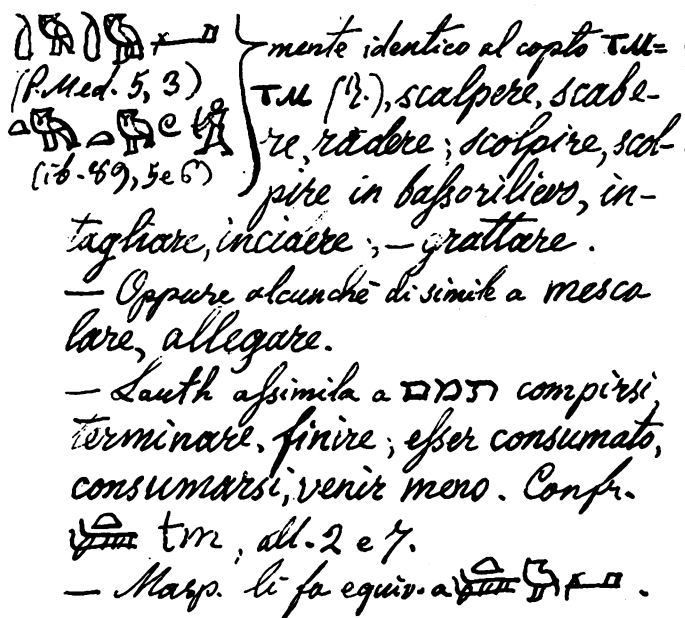 (P. Med. 5, 3)
(ib. 89, 5 e 6)
mente identico al copto ⲧⲙ=
ⲧⲙ scalpere, scabe-
re, radere; scolpire, scol-
pire in baſsorilievo, in-
tagliare, incidere; — grattare.
— Oppure alcunchè di simile a mesco
lare, allegare.
— Lauth aſsimila a תמם compirsi,
terminare, finire; eſser consumato,
consumarsi, venir meno. Confr.
tm, all. 2 e 7.
— Masp. li fa equiv. a